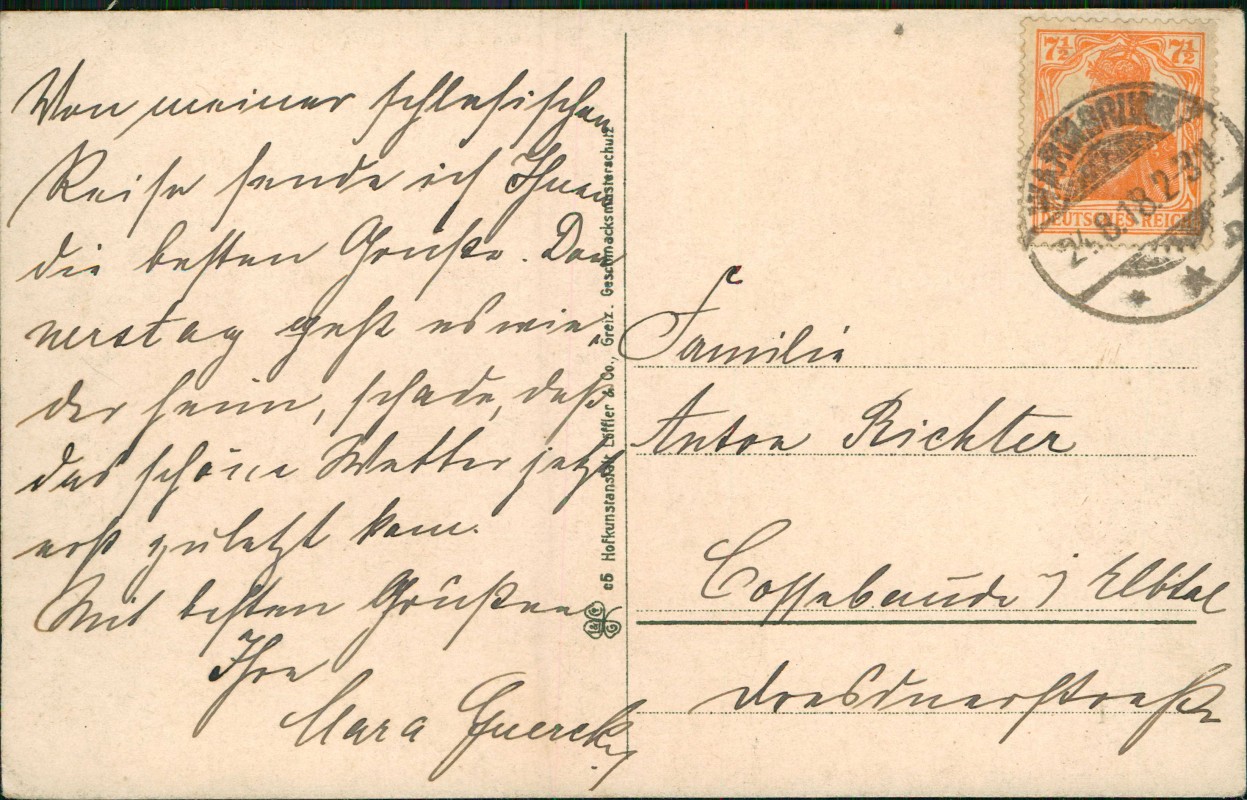 Von meiner schlesischen
Reise sende ich Ihnen
die besten Grüße. Don
nerstag geht es wie,
der heim, schade, daß
das schöne Wetter jetzt
erst zuletzt kam.
Mit besten Grüßen
Ihre
Clara
c5 Hofkunstanstalt Löffler & Co., Greiz. Geschmacksmusterschutz
L&C G
7½ 7½
DEUTSCHES REICH
WARMBRUNN
24.8.18.2-3N.
Familie
Anton Richter
Cossebaude i Elbtal
Dresdnerstraße